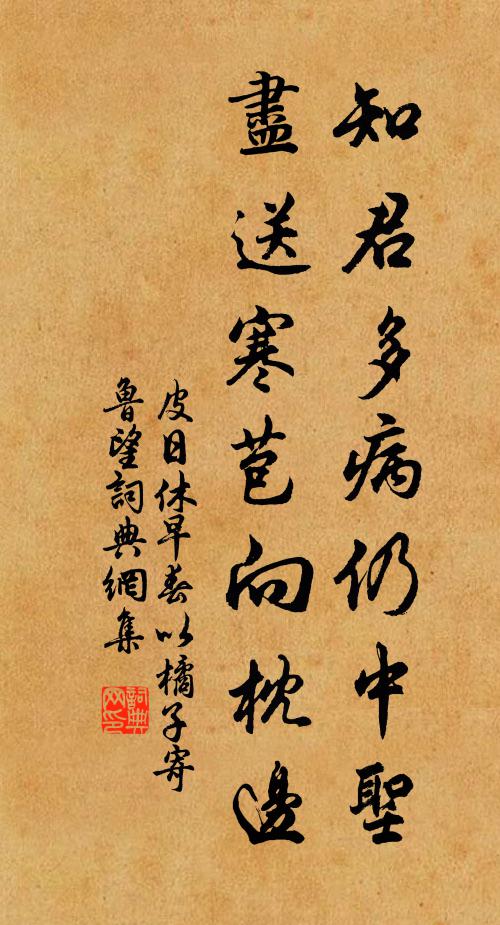 知君多病仍中聖
盡送寒苞向枕邊
皮日休早春以橘子寄
魯望詞典網集
詞典網印